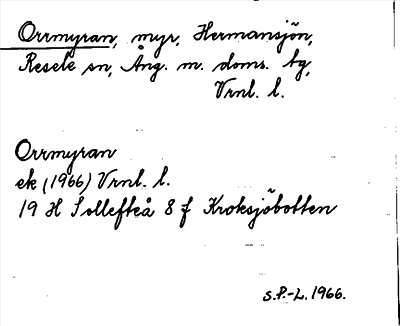 Orrmyran, myr, Hermansjön,
Resele sn, Ång. m. doms. tg,
Vrnl. l.
Orrmyran
ek (1966) Vrnl. l.
19 H Sollefteå 8 f Kroksjöbotten
S.P.-L. 1966.